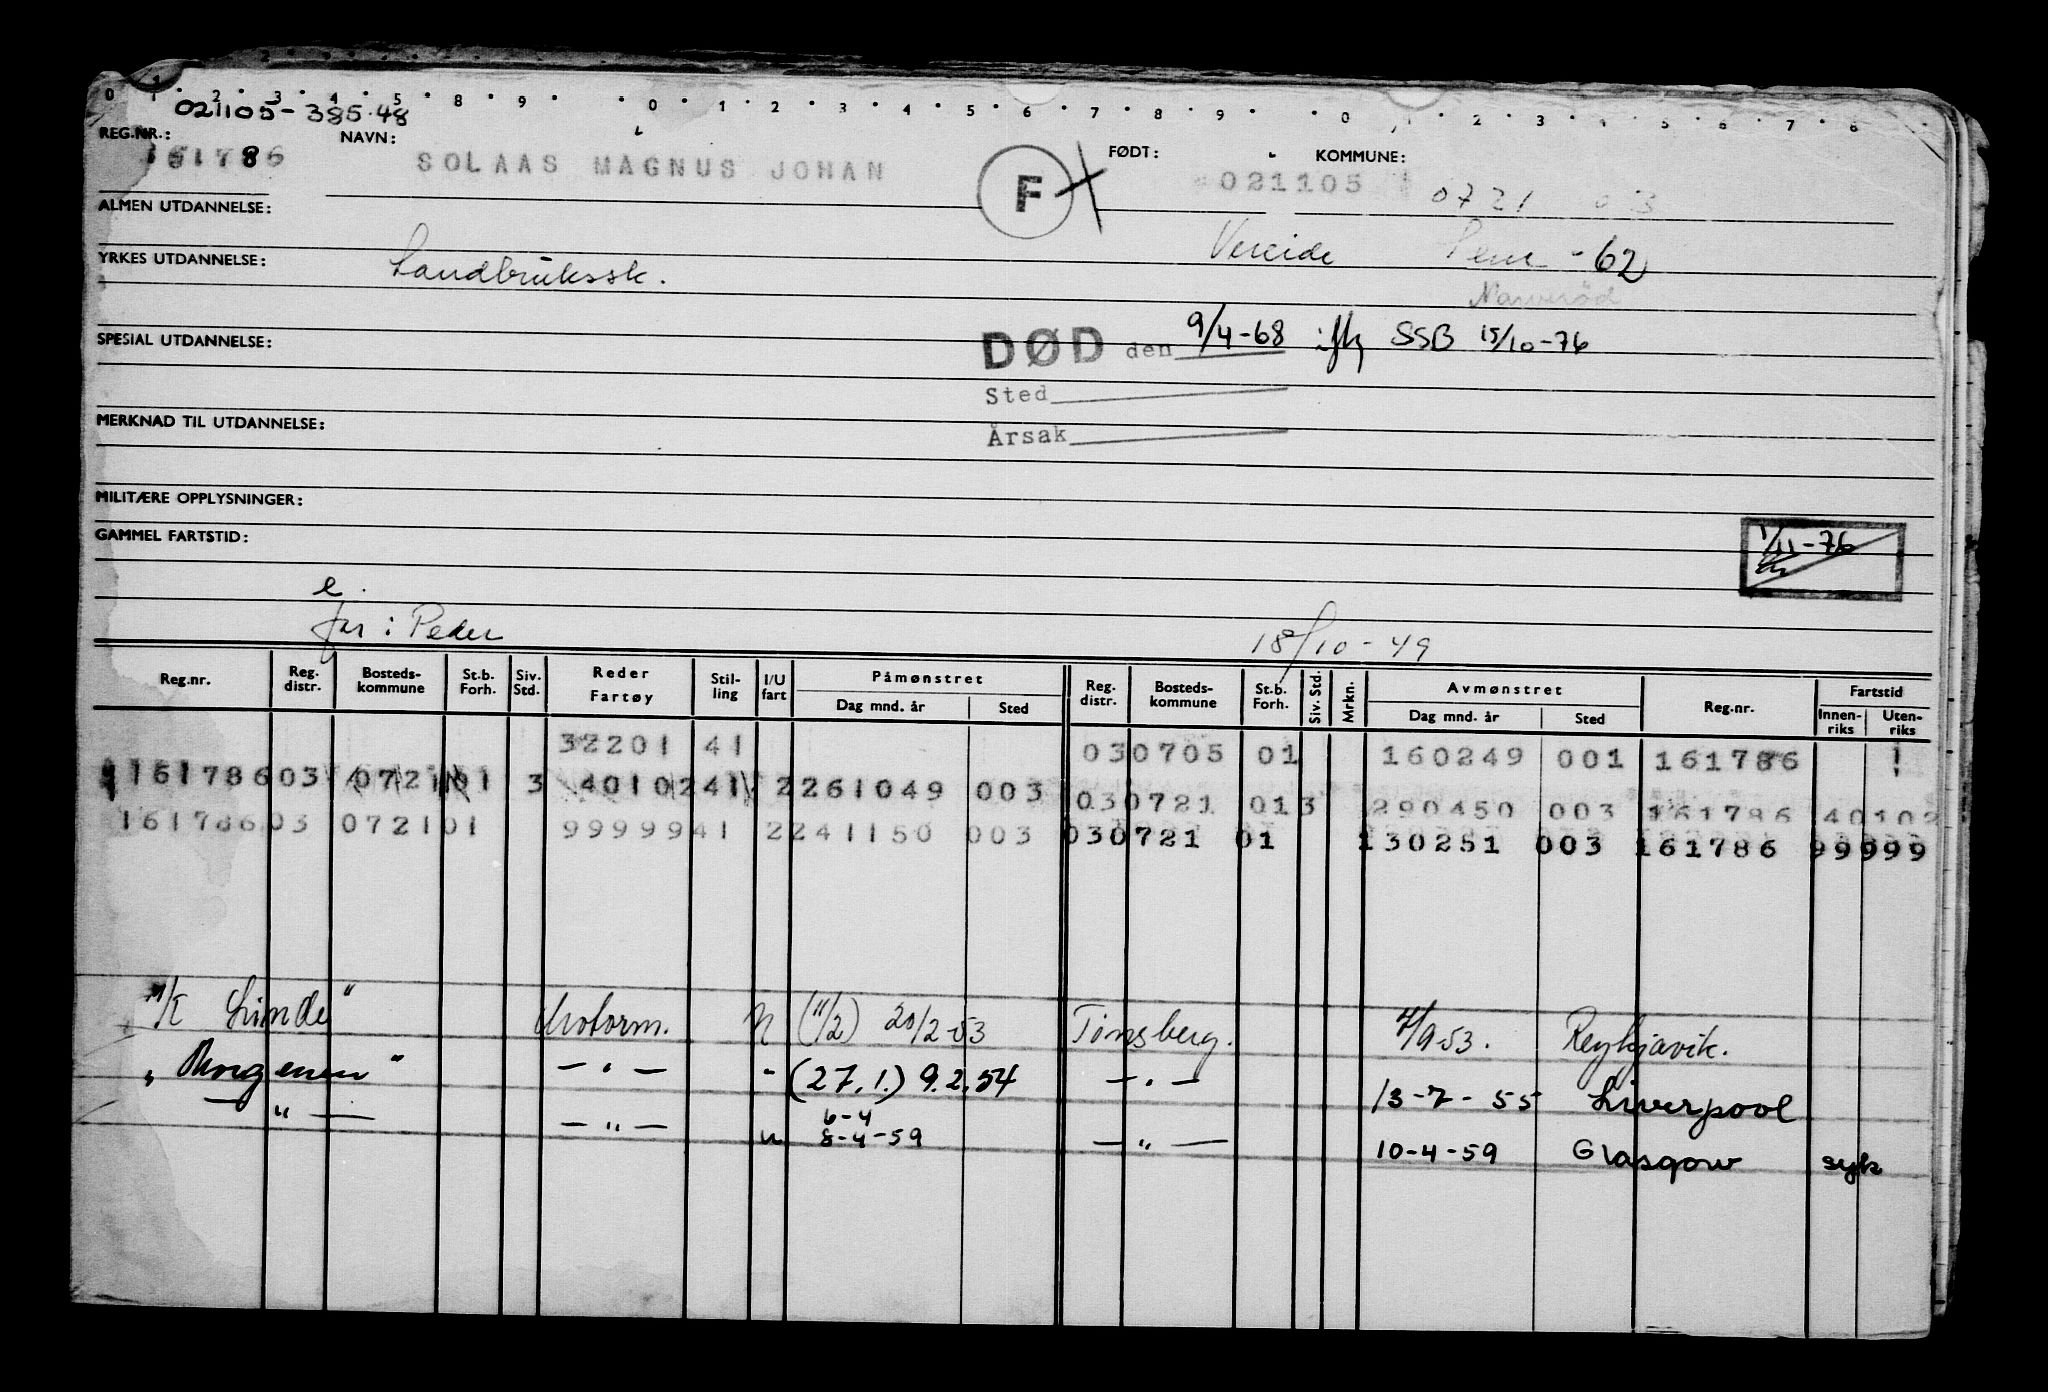 0 1 2 3 4 5 8 9 0 1 2 3 4 5 6 7 8 9 0 2 3 4 5 6 7 8
021105-385.48
REG.NR.: NAVN: FØDT: KOMMUNE:
161786 SOLAAS MAGNUS JOHAN F 021105 0721
ALMEN UTDANNELSE:
Vereide -62
YRKES UTDANNELSE: Landbrukssk.
SPESIAL UTDANNELSE:
DØD den 9/4-68 iflg SSB 15/10-76
Sted
Årsak
MERKNAD TIL UTDANNELSE:
MILITÆRE OPPLYSNINGER:
GAMMEL FARTSTID:
1/11-76
e.
far: Peder 18/10-49
Reg.nr. Reg. distr. Bosteds-kommune St.b. Forh. Siv. Std. Reder Fartøy Stil-ling I/U fart Påmønstret Dag mnd. år Sted Reg. distr. Bosteds-kommune St.b. Forh. Siv. Std. Mrkn. Avmønstret Dag mnd. år Sted Reg.nr. Fartstid Innen-riks Uten-riks
32201 41 030705 01 160249 001 161786
161786 03 0721 01 3 40102 41 2 261049 003 030721 01 3 290450 003 161786 40102
161786 03 0721 01 99999 41 2 241150 003 030721 01 130251 003 161786 99999
M/K Linde" Motorm. N (11/2) 20/2-53 Tønsberg. 4/9-53. Reykjavik.
"Morgenen" — " — " (27.1.) 9.2.54 — " — 13-7-55 Liverpool
— " — — " — u 6-4 8-4-59 — " — 10-4-59 Glasgow syk